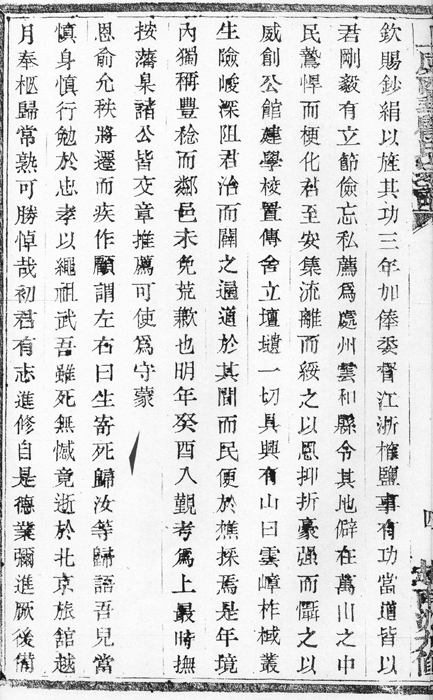 欽賜鈔絹以旌其功三年加俸委督江浙榷鹽事有功當道皆以
君剛毅有立節儉忘私薦爲處州雲和縣令其地僻在萬山之中
民鷙悍而梗化君至安集流離而綏之以恩抑折豪强而懾之以
威創公館建學校置傳舍立壇壝一切具興有山曰雲嶂柞棫叢
生險峻深阻君治而闢之過道於其間而民便於樵採焉是年境
內獨稱豐稔而鄰邑未免荒歉也明年癸酉入覲考爲上最時撫
按藩臬諸公皆交章推薦可使爲守蒙
恩俞允秩將遷而疾作顧謂左右曰生寄死歸汝等歸語吾兒當
慎身慎行勉於忠孝以繩祖武吾雖死無憾竟逝於北京旅舘越
月奉柩歸常熟可勝悼哉初君有志進修自是德業彌進厥後衛